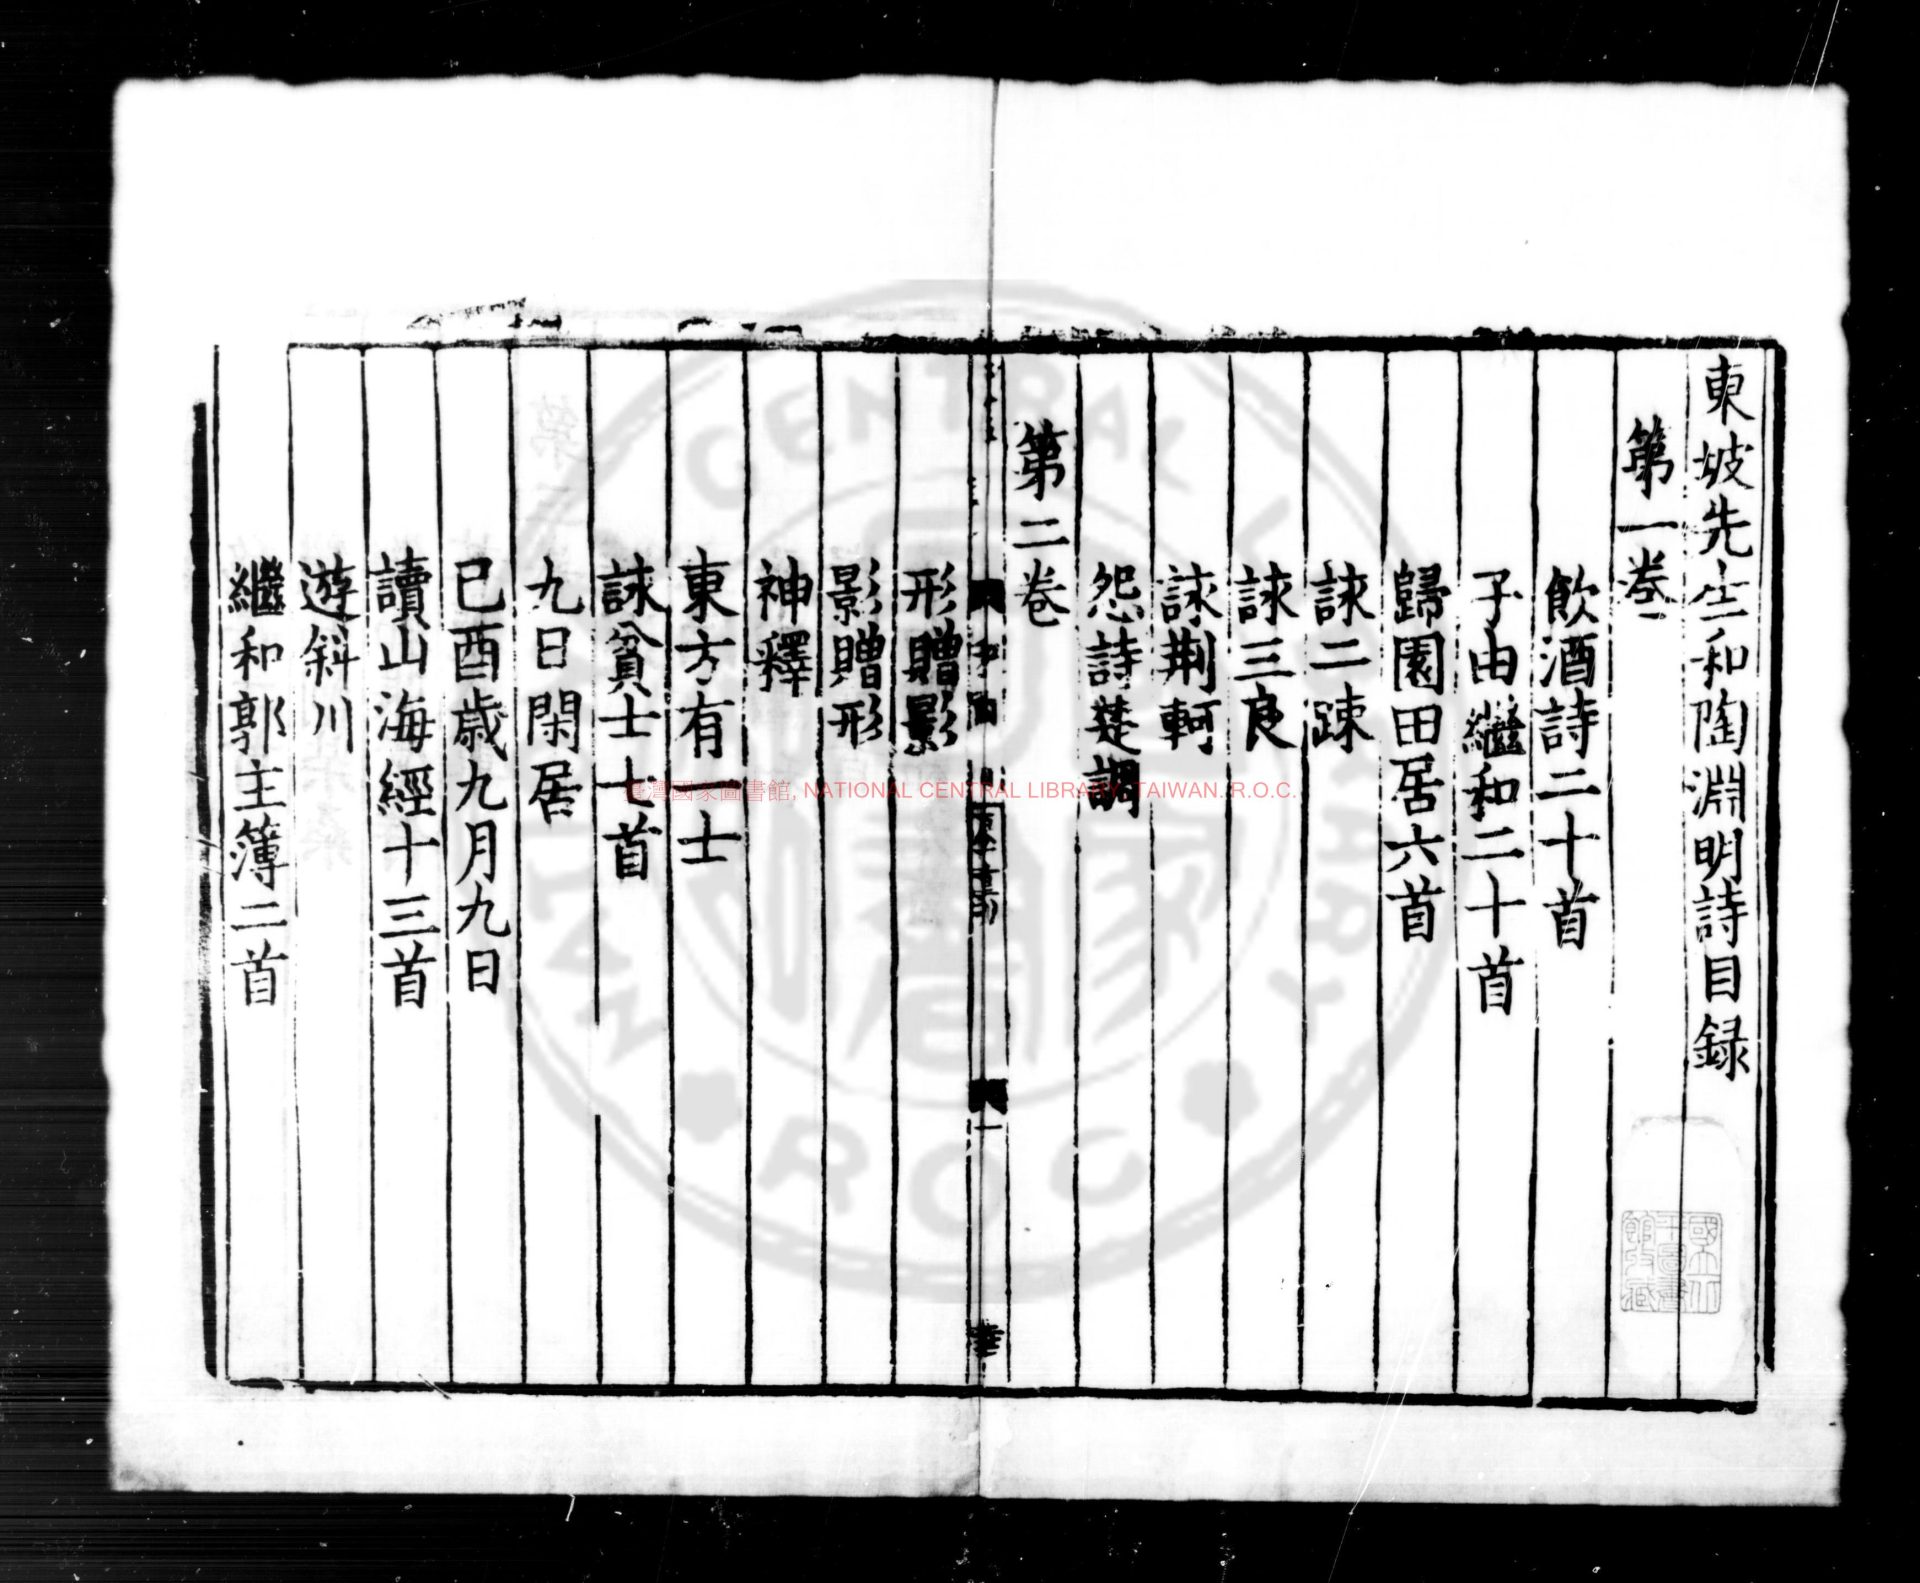 東坡先生和陶淵明詩目録
第一卷
飲酒詩二十首
子由繼和二十首
歸園田居六首
詠二疎
詠三良
詠荆軻
怨詩楚調
第二卷
形贈影
影贈形
神釋
東方有一士
詠貧士七首
九日閑居
已酉歳九月九日
讀山海經十三首
遊斜川
繼和郭主簿二首
臺灣國家圖書館, NATIONAL CENTRAL LIBRARY, TAIWAN. R.O.C.